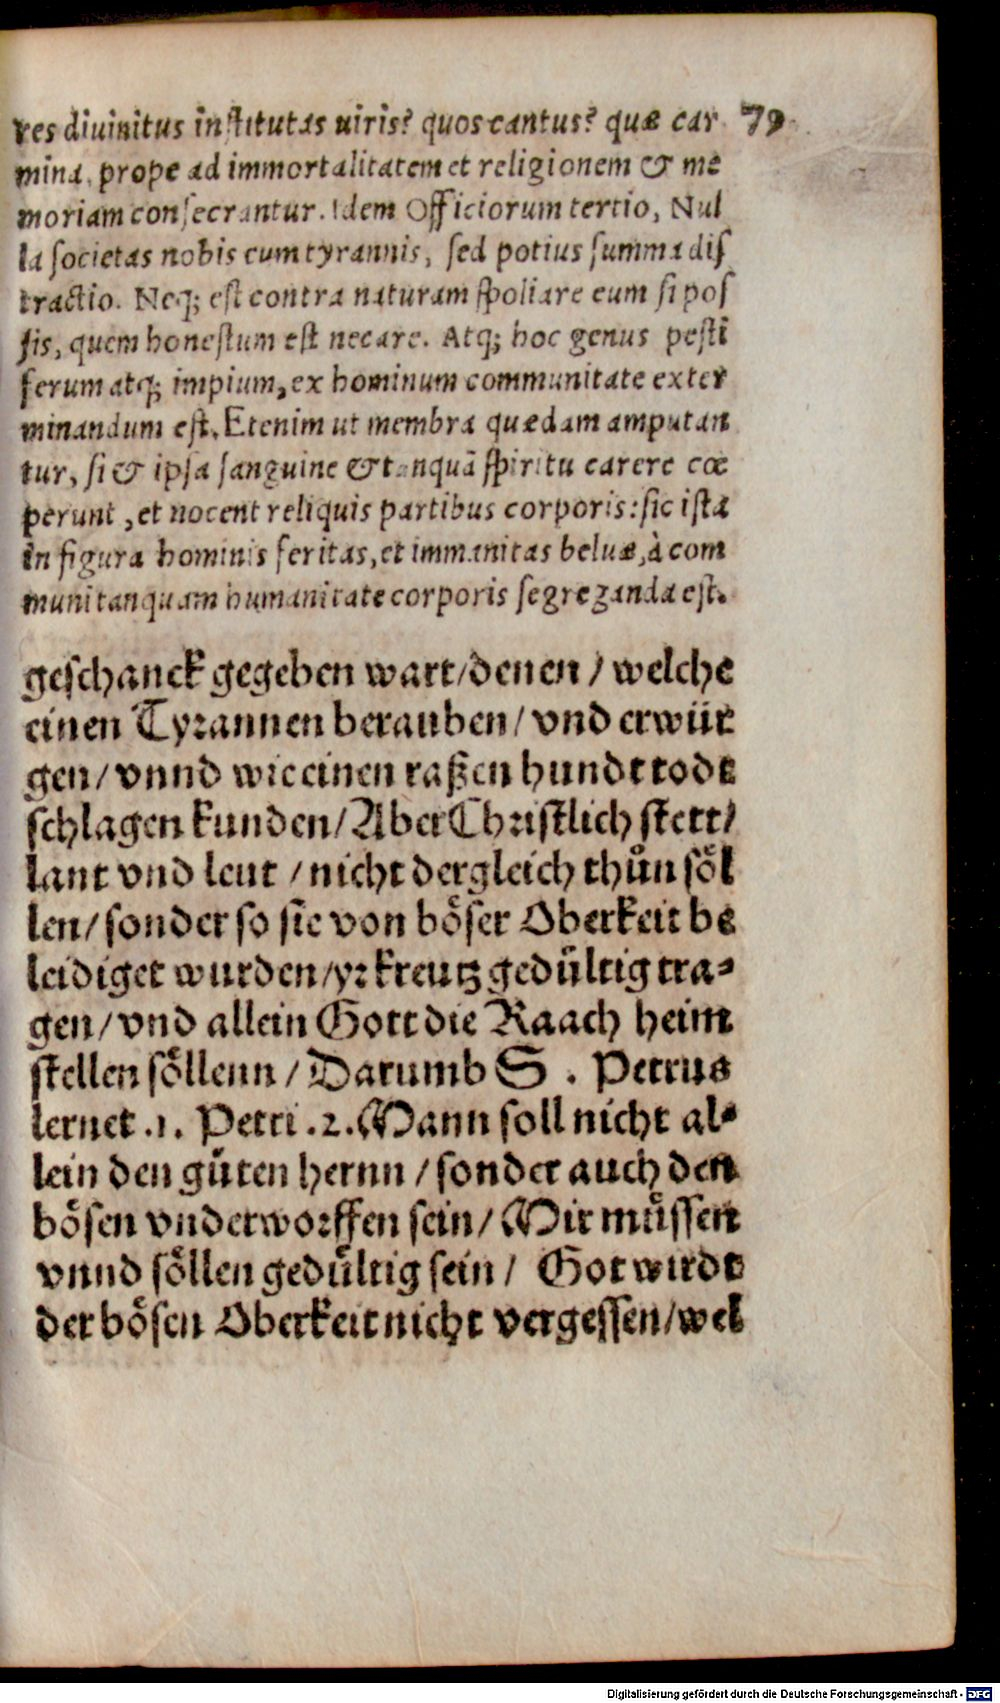 res diuinitus institutas uiris? quos cantus? quæ car 79
mina, prope ad immortalitatem et religionem & me
moriam consecrantur. Idem Officiorum tertio, Nul
la societas nobis cum tyrannis, sed potius summa dis
tractio. Neq; est contra naturam spoliare eum si pos
sis, quem honestum est necare. Atq; hoc genus pesti
ferum atq; impium, ex hominum communitate exter
minandum est. Etenim ut membra quædam amputan
tur, si & ipsa sanguine & tanquã spiritu carere cœ
perunt, et nocent reliquis partibus corporis: sic ista
in figura hominis feritas, et immanitas beluæ, à com
muni tanquam humanitate corporis segreganda est.
geschanck gegeben wart/denen/welche
einen Tyrannen berauben/vnd erwür
gen/vnnd wie einen raßen hundt todt
schlagen kunden/Aber Christlich stett/
lant vnd leut/nicht dergleich thůn söl
len/sonder so sie von böser Oberkeit be
leidiget wurden/yr kreutz gedültig tra-
gen/vnd allein Gott die Raach heim
stellen söllenn/Darumb S. Petrus
lernet .1. Petri .2. Mann soll nicht al-
lein den gůten hernn/sonder auch den
bösen vnderworffen sein/Wir müssen
vnnd söllen gedültig sein/ Got wirdt
der bösen Oberkeit nicht vergessen/wel
Digitalisierung gefördert durch die Deutsche Forschungsgemeinschaft - DFG